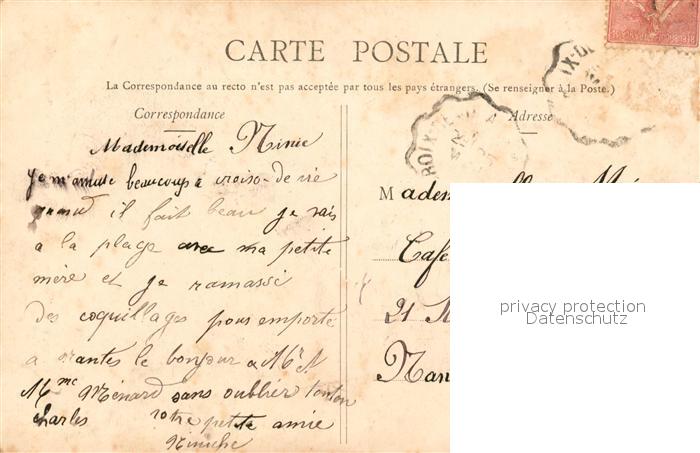 CARTE POSTALE
La Correspondance au recto n'est pas acceptée par tous les pays étrangers. (Se renseigner à la Poste.)
Correspondance
Mademoiselle Ninie
Je m'amuse beaucoup a croiso-de vie
quand il fait beau je vais
a la plage avec ma petite
mère et je ramasse
des coquillages pour emporté
a nantes le bonjour a Mr A
Mme Ménard sans oublier tonton
charles votre petite amie
Niniche
Adresse
Madem
Café
21
Nan
privacy protection
Datenschutz